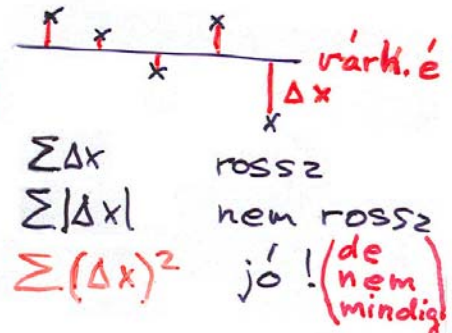 várh. é
Δx
ΣΔx rossz
Σ|Δx| nem rossz
Σ(Δx)² jó ! (de nem mindig)